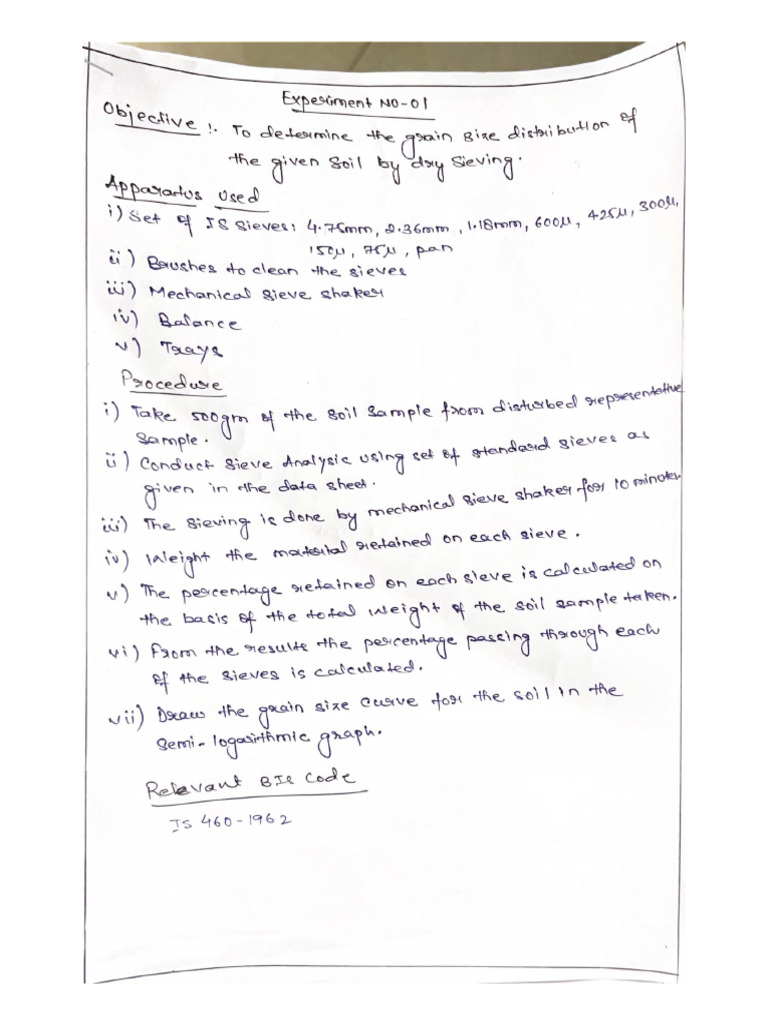 Experiment NO-01
Objective :. To determine the grain size distribution of
the given soil by dry sieving.
Apparatus Used
i) Set of IS Sieves: 4.75mm, 2.36mm, 1.18mm, 600μ, 425μ, 300μ,
150μ, 75μ, pan
ii) Brushes to clean the sieves
iii) Mechanical sieve shaker
iv) Balance
v) Trays
Procedure
i) Take 500gm of the soil sample from disturbed representative
sample.
ii) Conduct sieve Analysis using set of standard sieves as
given in the data sheet.
iii) The sieving is done by mechanical sieve shaker for 10 minutes.
iv) Weight the material retained on each sieve.
v) The percentage retained on each sieve is calculated on
the basis of the total weight of the soil sample taken.
vi) From the results the percentage passing through each
of the sieves is calculated.
vii) Draw the grain size curve for the soil in the
semi-logarithmic graph.
Relevant BIS Code
IS 460-1962